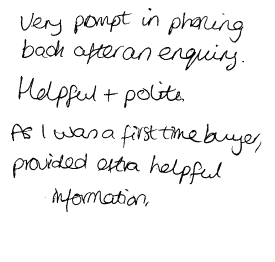 Very prompt in phoning
back after an enquiry.
Helpful + polite
As I was a first time buyer,
provided extra helpful
information,